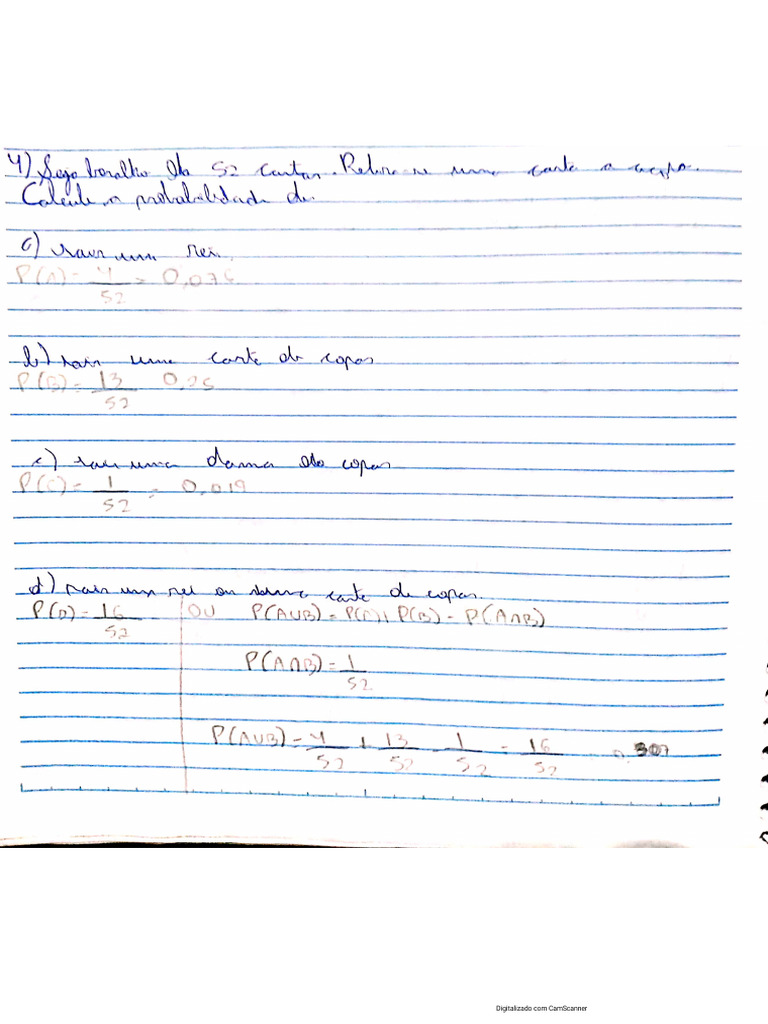 4) Seja baralho de 52 cartas. Retira-se uma carta a acaso.
Calcule a probabilidade de:
a) sair um rei.
P(A) = 4/52 = 0,076
b) sair uma carta de copas
P(B) = 13/52 0,25
c) sair uma dama de copas
P(C) = 1/52 = 0,019
d) sair um rei ou uma carta de copas.
P(D) = 16/52 OU P(A∪B) = P(A) + P(B) - P(A∩B)
P(A∩B) = 1/52
P(A∪B) = 4/52 + 13/52 - 1/52 = 16/52 0,307
Digitalizado com CamScanner